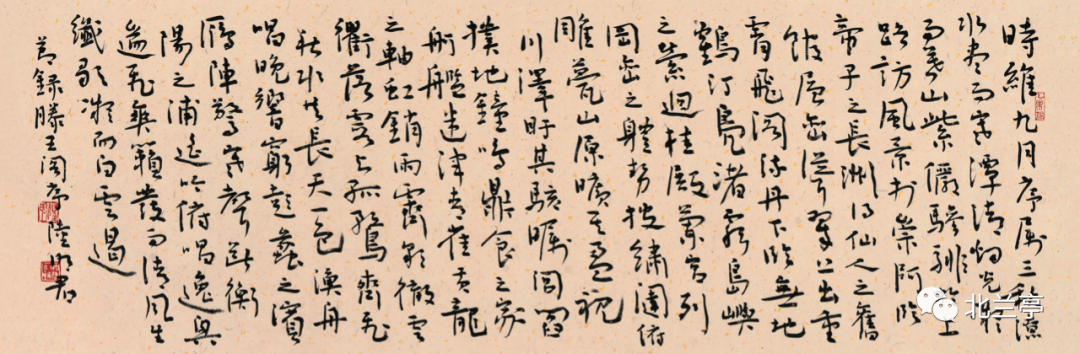 時維九月序屬三秋潦
水盡而寒潭清烟光凝
而暮山紫儼驂騑於上
路訪風景於崇阿臨
帝子之長洲得仙人之舊
館層巒聳翠上出重
霄飛閣流丹下臨無地
鶴汀鳧渚窮島嶼
之縈迴桂殿蘭宮列
岡巒之體勢披繡闥俯
雕甍山原曠其盈視
川澤盱其駭矚閭閻
撲地鐘鳴鼎食之家
舸艦迷津青雀黃龍
之軸虹銷雨霽彩徹雲
衢落霞与孤鶩齊飛
秋水共長天一色漁舟
唱晚響窮彭蠡之濱
雁陣驚寒聲斷衡
陽之浦遙吟俯唱逸興
遄飛爽籟發而清風生
纖歌凝而白雲遏
節錄滕王閣序 陸明君
北兰亭